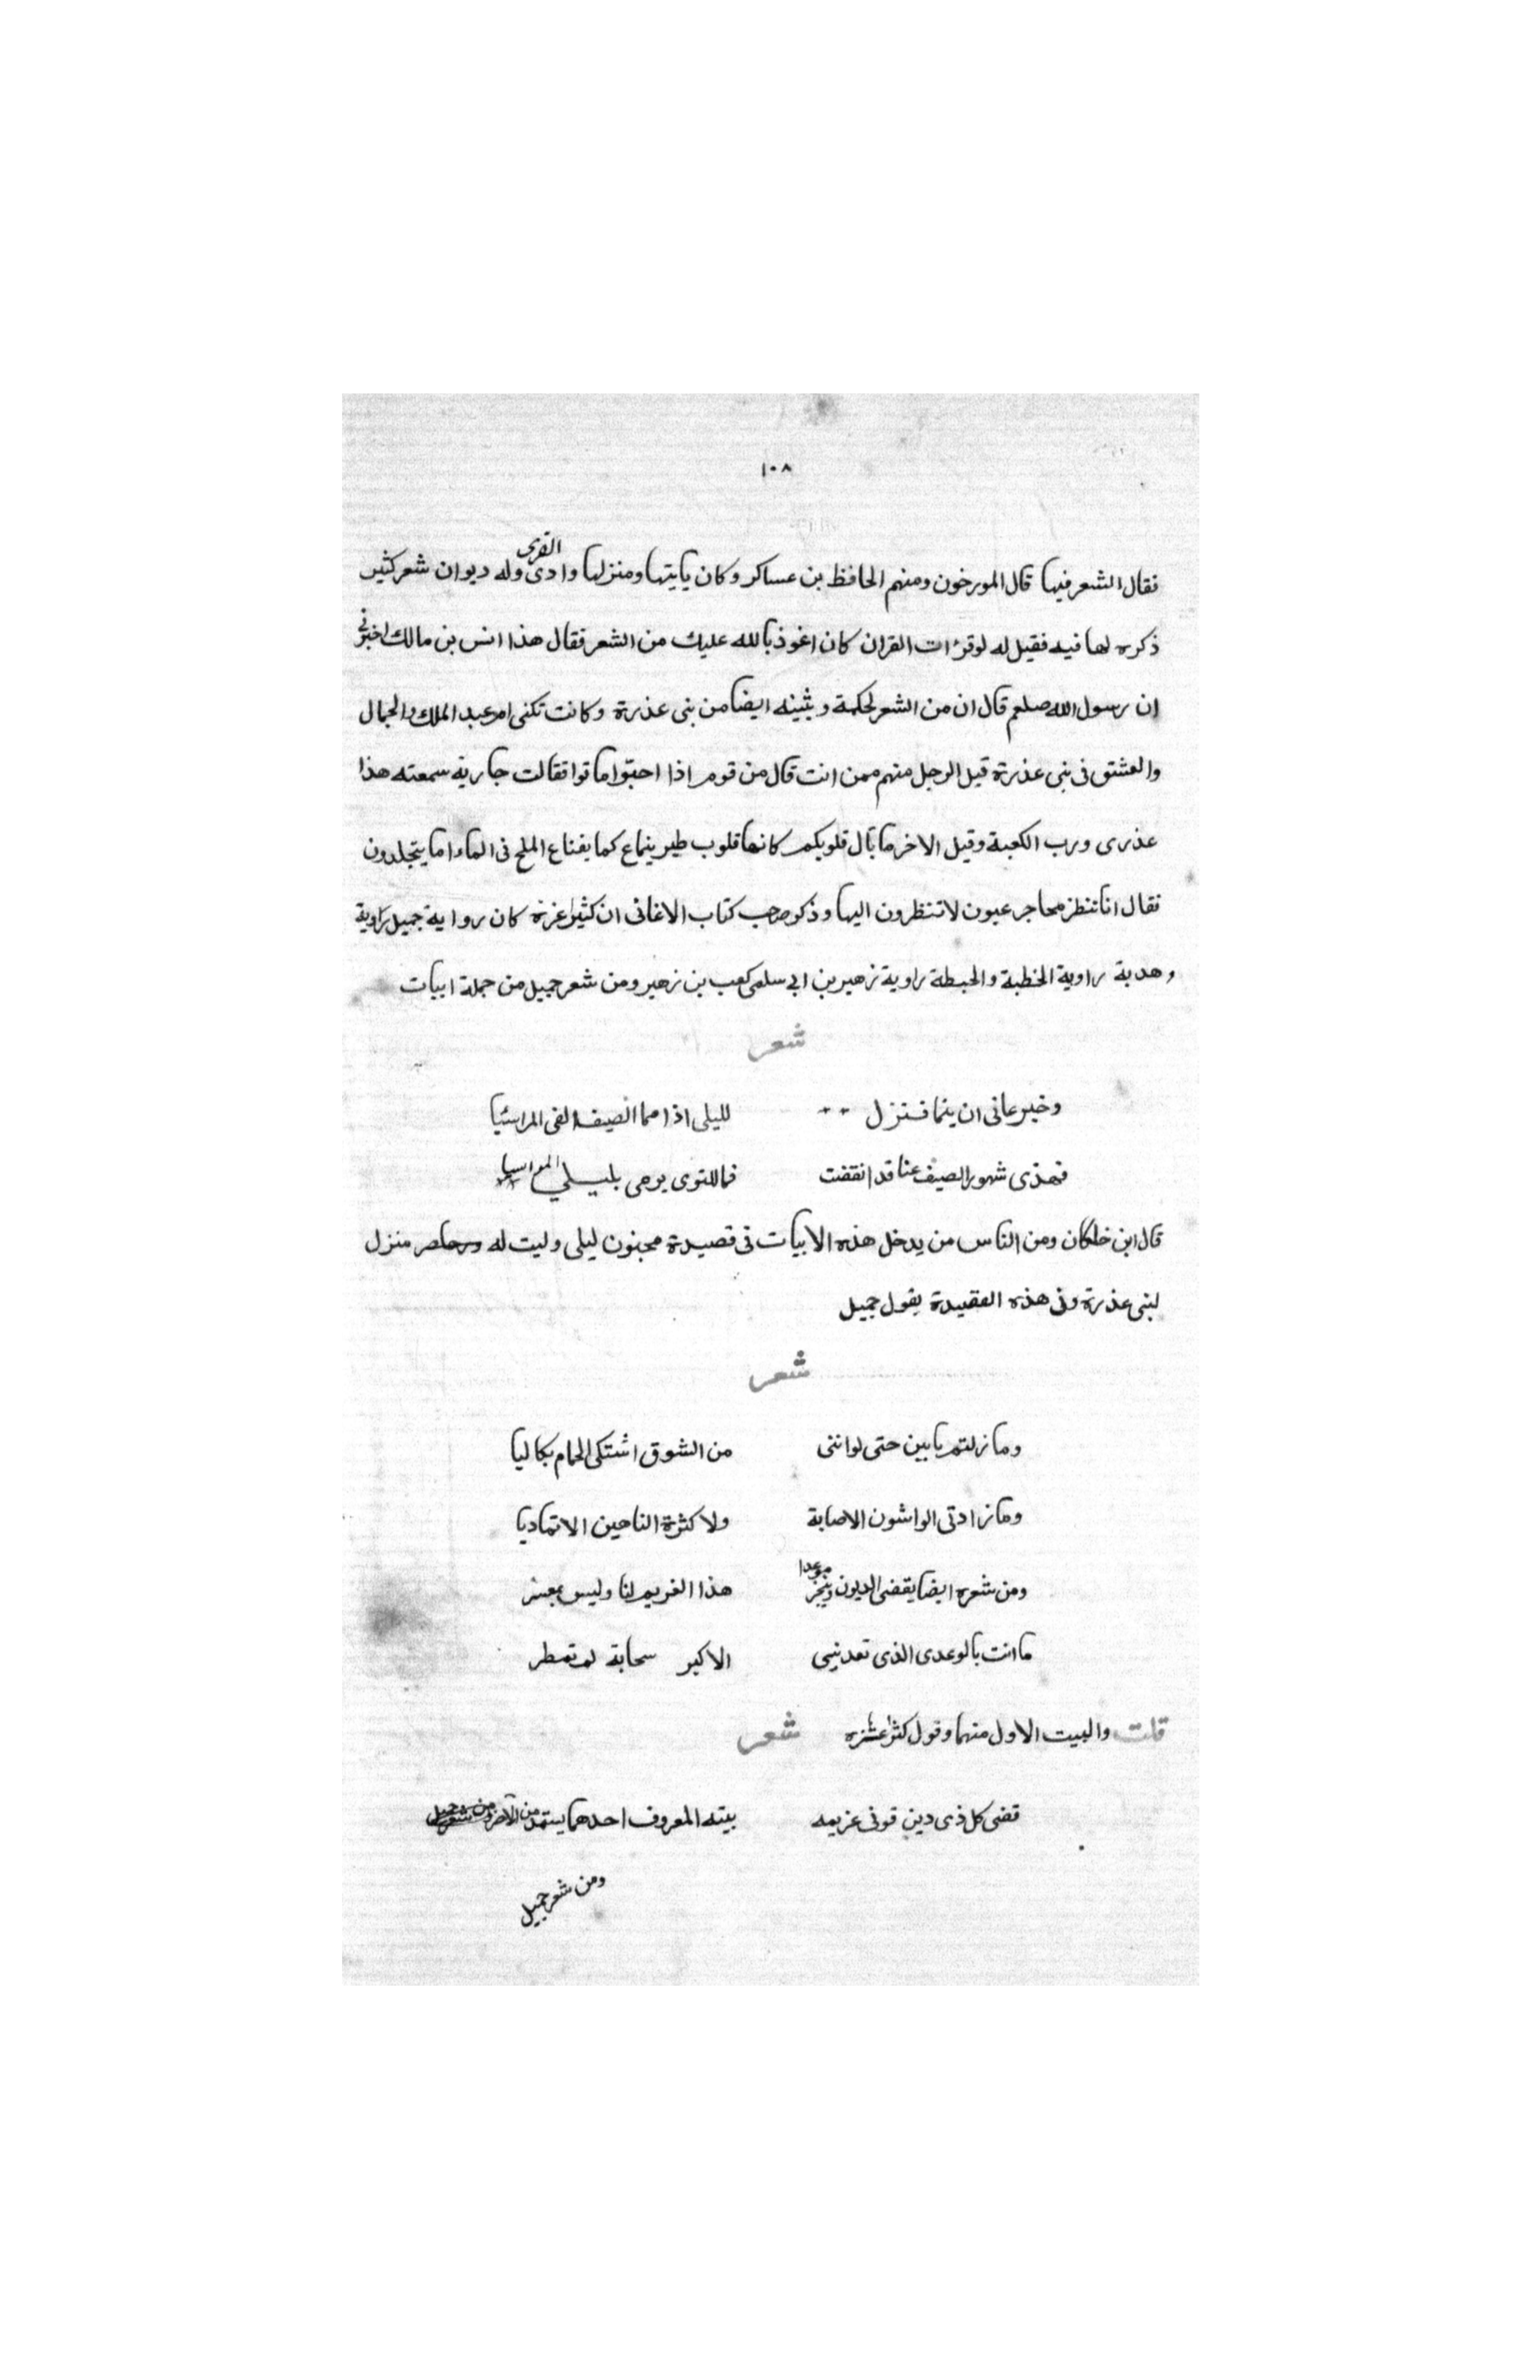 ١٠٨
فقال الشعر فيها قال المورخون ومنهم الحافظ بن عساكر وكان ياتيها ومنزلها وادى القرى وله ديوان شعر كثير
ذكره لها فيه فقيل له لو قرٔات القران كان اعوذ بالله عليك من الشعر فقال هذا انس بن مالك اخبرنى
ان رسول الله صلعم قال ان من الشعر لحكمة وبثينه ايضا من بنى عذرة وكانت تكنى ام عبد الملك والجمال
والعشق فى بنى عذرة قيل الرجل منهم ممن انت قال من قوم اذا احبّوا ماتوا فقالت جارية سمعته هذا
عذرى ورب الكعبة وقيل الاخر ما بال قلوبكم كانها قلوب طير ينماع كما يفناع الملح فى الماء اما يتجلدون
فقال انا ننظر محاجر عيون لا تنظرون اليها وذكر صاحب كتاب الاغانى ان كثير عزة كان رواية جميل راوية
وهدبة راوية الخطبة والحبطة راوية زهير بن ابى سلمى كعب بن زهير ومن شعر جميل من جملة ابيات
شعر
وخبرعانى ان ينما فنزل لليلى اذا مما الصيف الفى المراسيا
فهذى شهور الصيف عنا قد انقفت فما للنوى يرمى بليلي المواسيا
قال ابن خلكان ومن الناس من يدخل هذه الابيات فى قصيدة مجنون ليلى وليت له منزل
لبنى عذرة وفى هذه العقيدة يقول جميل
شعر
وما زلتم يا بين حتى لو اننى من الشوق اشتكى الحمام بكا ليا
وما زادتى الواشون الاصابة ولا كثرة الناحين الا تماديا
ومن شعره ايضا يقضى الديون وينجز موعدا هذا الغريم لنا وليس بمعسر
ما انت بالوعدى الذى تعدنيى الا كبر سحابة لم تمطر
قلت والبيت الاول منهما وقول كثر عشزه شعر
قضى كل ذى دين قوفى عزيمه بيته المعروف احدهما يستمد من الآخر
ومن شعر جميل